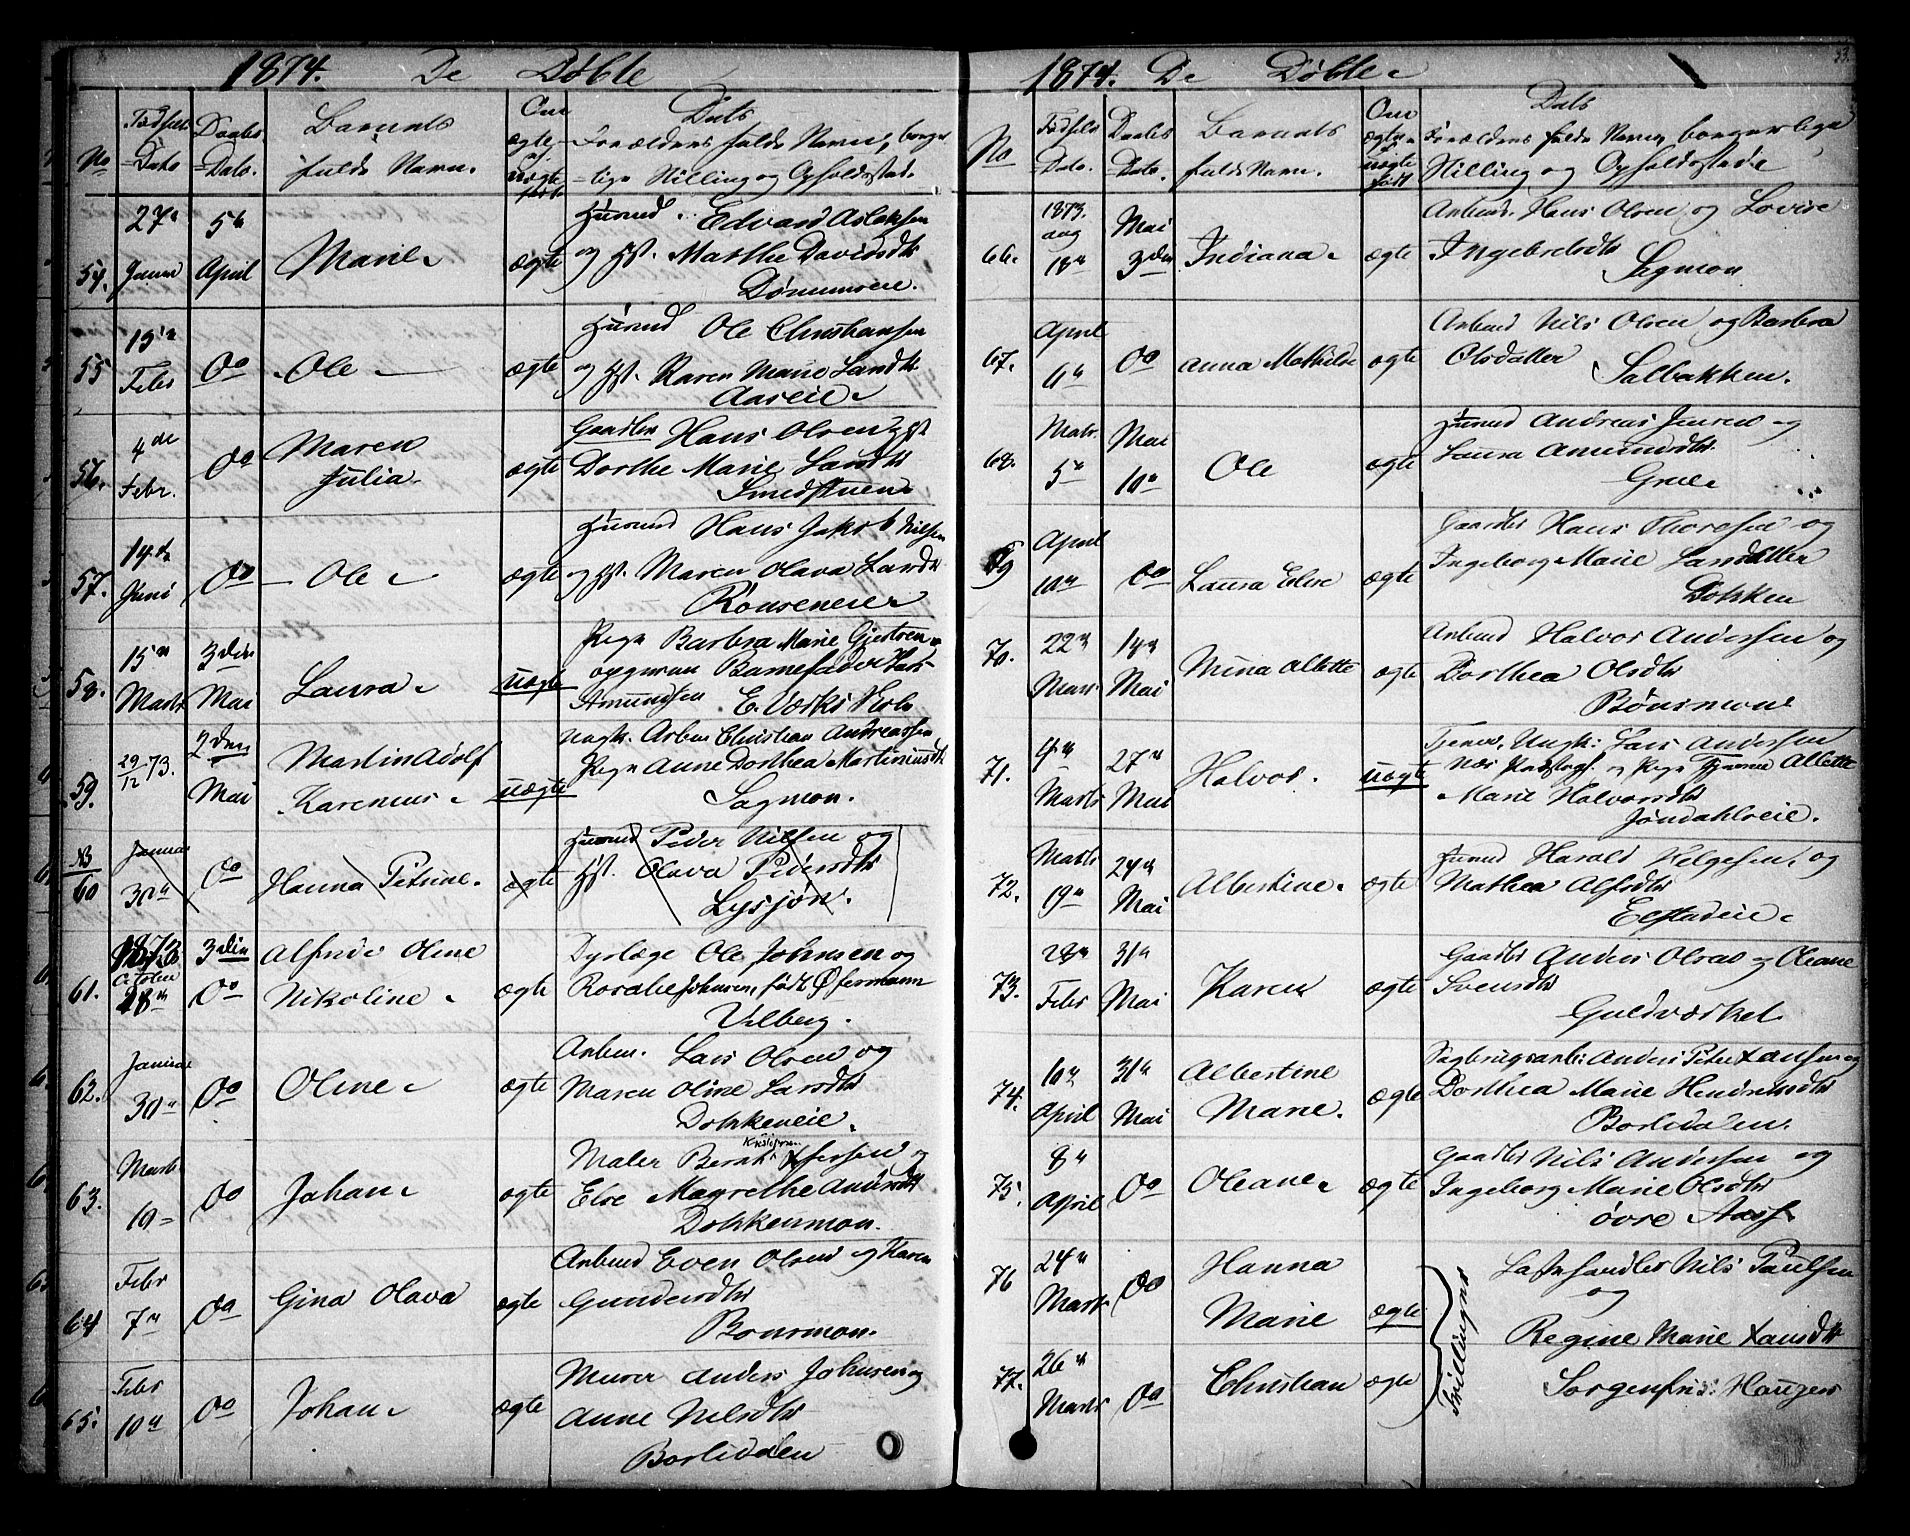 1874. De Døbte
No
Fødsels
=Dato
Daabs
=Dato.
Barnets
fulde Navn.
Om
ægte
el.
uægte
født.
Dets
Forældres fulde Navn, borger
=lige Stilling og Opholdssted.
54.
27de
Januar
5te
April
Marie
ægte
Husmd. Edvard Aslaksen
og Hst. Mathea Davidsdtr
55
15de
Febr
Do
Ole
ægte
Husmd Ole Christiansen
og Hst. Karen Marie Larsdtr
Aaseie
56.
4de
Febr.
Do
Maren
Julia.
ægte
Gaardbr Hans Olsen og Hst
Dorthe Marie Larsdtr
Smedstuen
57.
14de
Do
Ole
ægte
Husmd Hans Jakob Nilsen
og Hst. Maren Olava Larsdtr
58.
15de
Marts
3die
Mai
Laura
uægte
Pige Barbra Marie Gjestsen
opgiven Barnefader Lars
Amundsen. E. Værks
59.
29/12 73.
2den
Mai
Martin Adolf
Karenius
uægte
Ungk. Arbm Christian Andreassen,
Pige Anne Dorthea Martiniusdtr
Sagmoen.
NB
60
Januar
30te
Do
Hanna Petrine.
ægte
Husmd Peder Nilsen og
Hst. Olava Pedersdtr
Lysjøen.
61.
1873
October
28de
3die
Do
Alfride Oline
Nikoline
ægte
Dyrlæge Ole Johnsen og
Rosalie Johnsen, født Øfermann
Vilberg.
62.
Januar
30te
Do
Oline
ægte
Arbm. Lars Olsen og
Maren Oline Larsdtr
Dokkeneie.
63.
Marts
10
Do
Johan
ægte
Kristofersen
Maler Bernt Xfersen og
Else Magrethe Andersdtr
Dokkenmoen.
64
Febr
7de
Do
Gina Olava
ægte
Arbmd Even Olsen og Karen
Gundersdtr
Bønsmoen.
65.
Febr
10de
Do
Johan
ægte
Murer Anders Johnsen og
Anne Nilsdtr
Borlidalen
33.
1874. De Døbte
No
Fødsels
Dato.
Daabs
Dato.
Barnets
fulde Navn.
Om
ægte
el
uægte
født
Dets
Forældres fulde Navn, borgerlige
Stilling og Opholdssted
66.
1873.
aug
18de
Mai
3die
Indiana
ægte
Arbmd. Hans Olsen og Lovise
Ingebretsdtr
Sagmoen
67.
April
6te
Do
Anna Mathilde
ægte
Arbmd Nils Olsen og Barbra
Olsdatter
Solbakken.
68.
Marts.
5te
Mai
10de
Ole
ægte
Husmd Andreas Jensen og
Laura Amundsdtr.
Grue
69
April
10de
Do
Laura Else
ægte
Gaardbr Hans Thoresen og
Ingeborg Marie Larsdatter
Dokken
70.
22de
Marts
14de
Mai
Mina Albette
ægte
Arbmd Halvor Andersen og
Dorthea Olsdtr
Bønsmoen
71.
4de
Marts
27de
Mai
Halvor.
uægte
Tjener, Ungk: Lars Andersen
Næs Præstegj. og Pige Tjenere Albette
Marie Halvorsdtr
Jøndahlseie.
72.
Marts
19de
24de
Mai
Albertine
ægte
Husmd Harald Helgesen, og
Mathea Alfsdtr
73.
28de
Febr
31te
Mai
Karen
ægte
Gaardbr Anders Olsen og Oleane
Svensdtr
Guldværket
74.
10de
April
31te
Mai
Albertine
Marie.
ægte
Sagbrugsarb: Anders Peter Hansen og
Dorthea Marie Hendriksdtr
Borlidalen.
75.
8de
April
Do
Oleane
ægte
Gaardbr Nils Andersen og
Ingeborg Marie Olsdtr
øvre Aas
76
24de
Marts
Do
Hanna
Marie
ægte
77.
26de
Marts
Do
Christian
ægte
Tvillinger
Landhandler Nils Paulsen
og
Regine Marie Hansdtr
Sorgenfri: Haugen